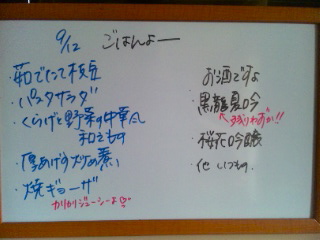 9/12 ごはんよー
・茹でたて枝豆
・パスタサラダ
・くらげと野菜の中華風
和えもの
・厚あげ
煮
・焼ギョーザ
かりかりジューシーよ♡
お酒ですよ
・黒龍 夏吟
残りわずか!!
・桜花吟醸
・他 いつもの。